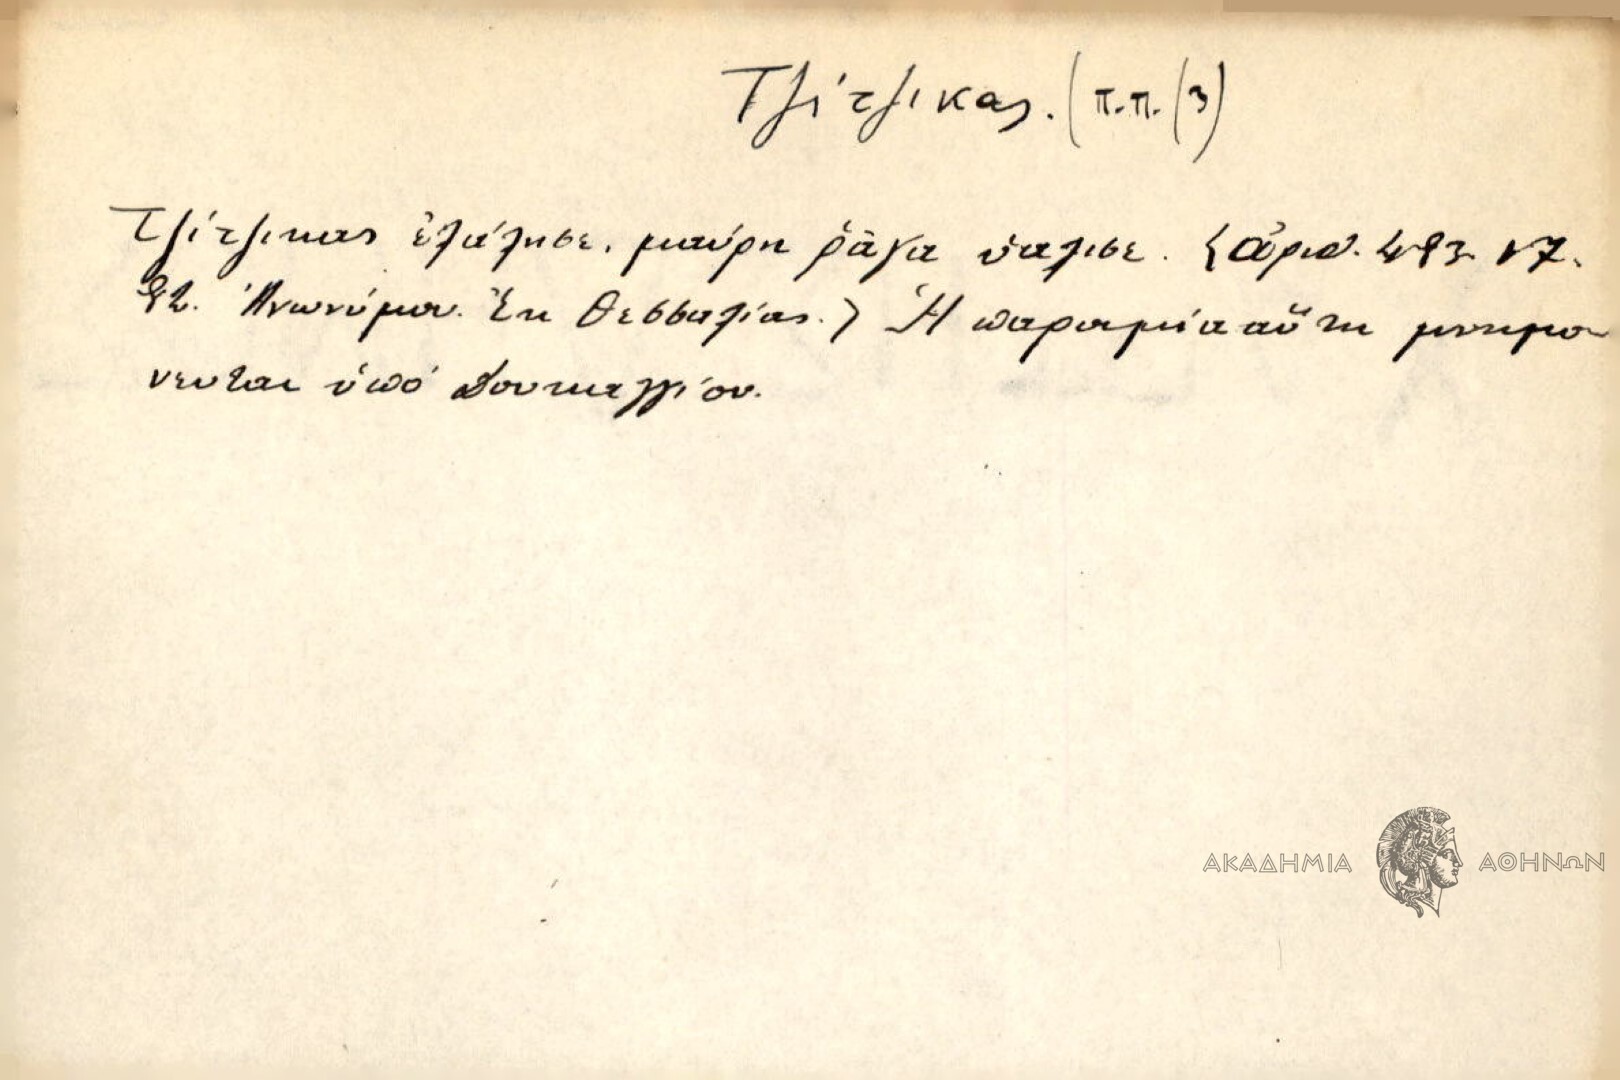 Τζίτζικας. (π.π. (3)
Τζίτζικας ἐλάλησε, μαύρη ῥᾶγα ὑάλισε. (ἀριθ. 493.
92. Ἀνωνύμου. Ἐκ Θεσσαλίας.) Ἡ παροιμία αὕτη μνημο-
νευται ὑπό Δουκαγγίου.
ΑΚΑΔΗΜΙΑ ΑΘΗΝΩΝ